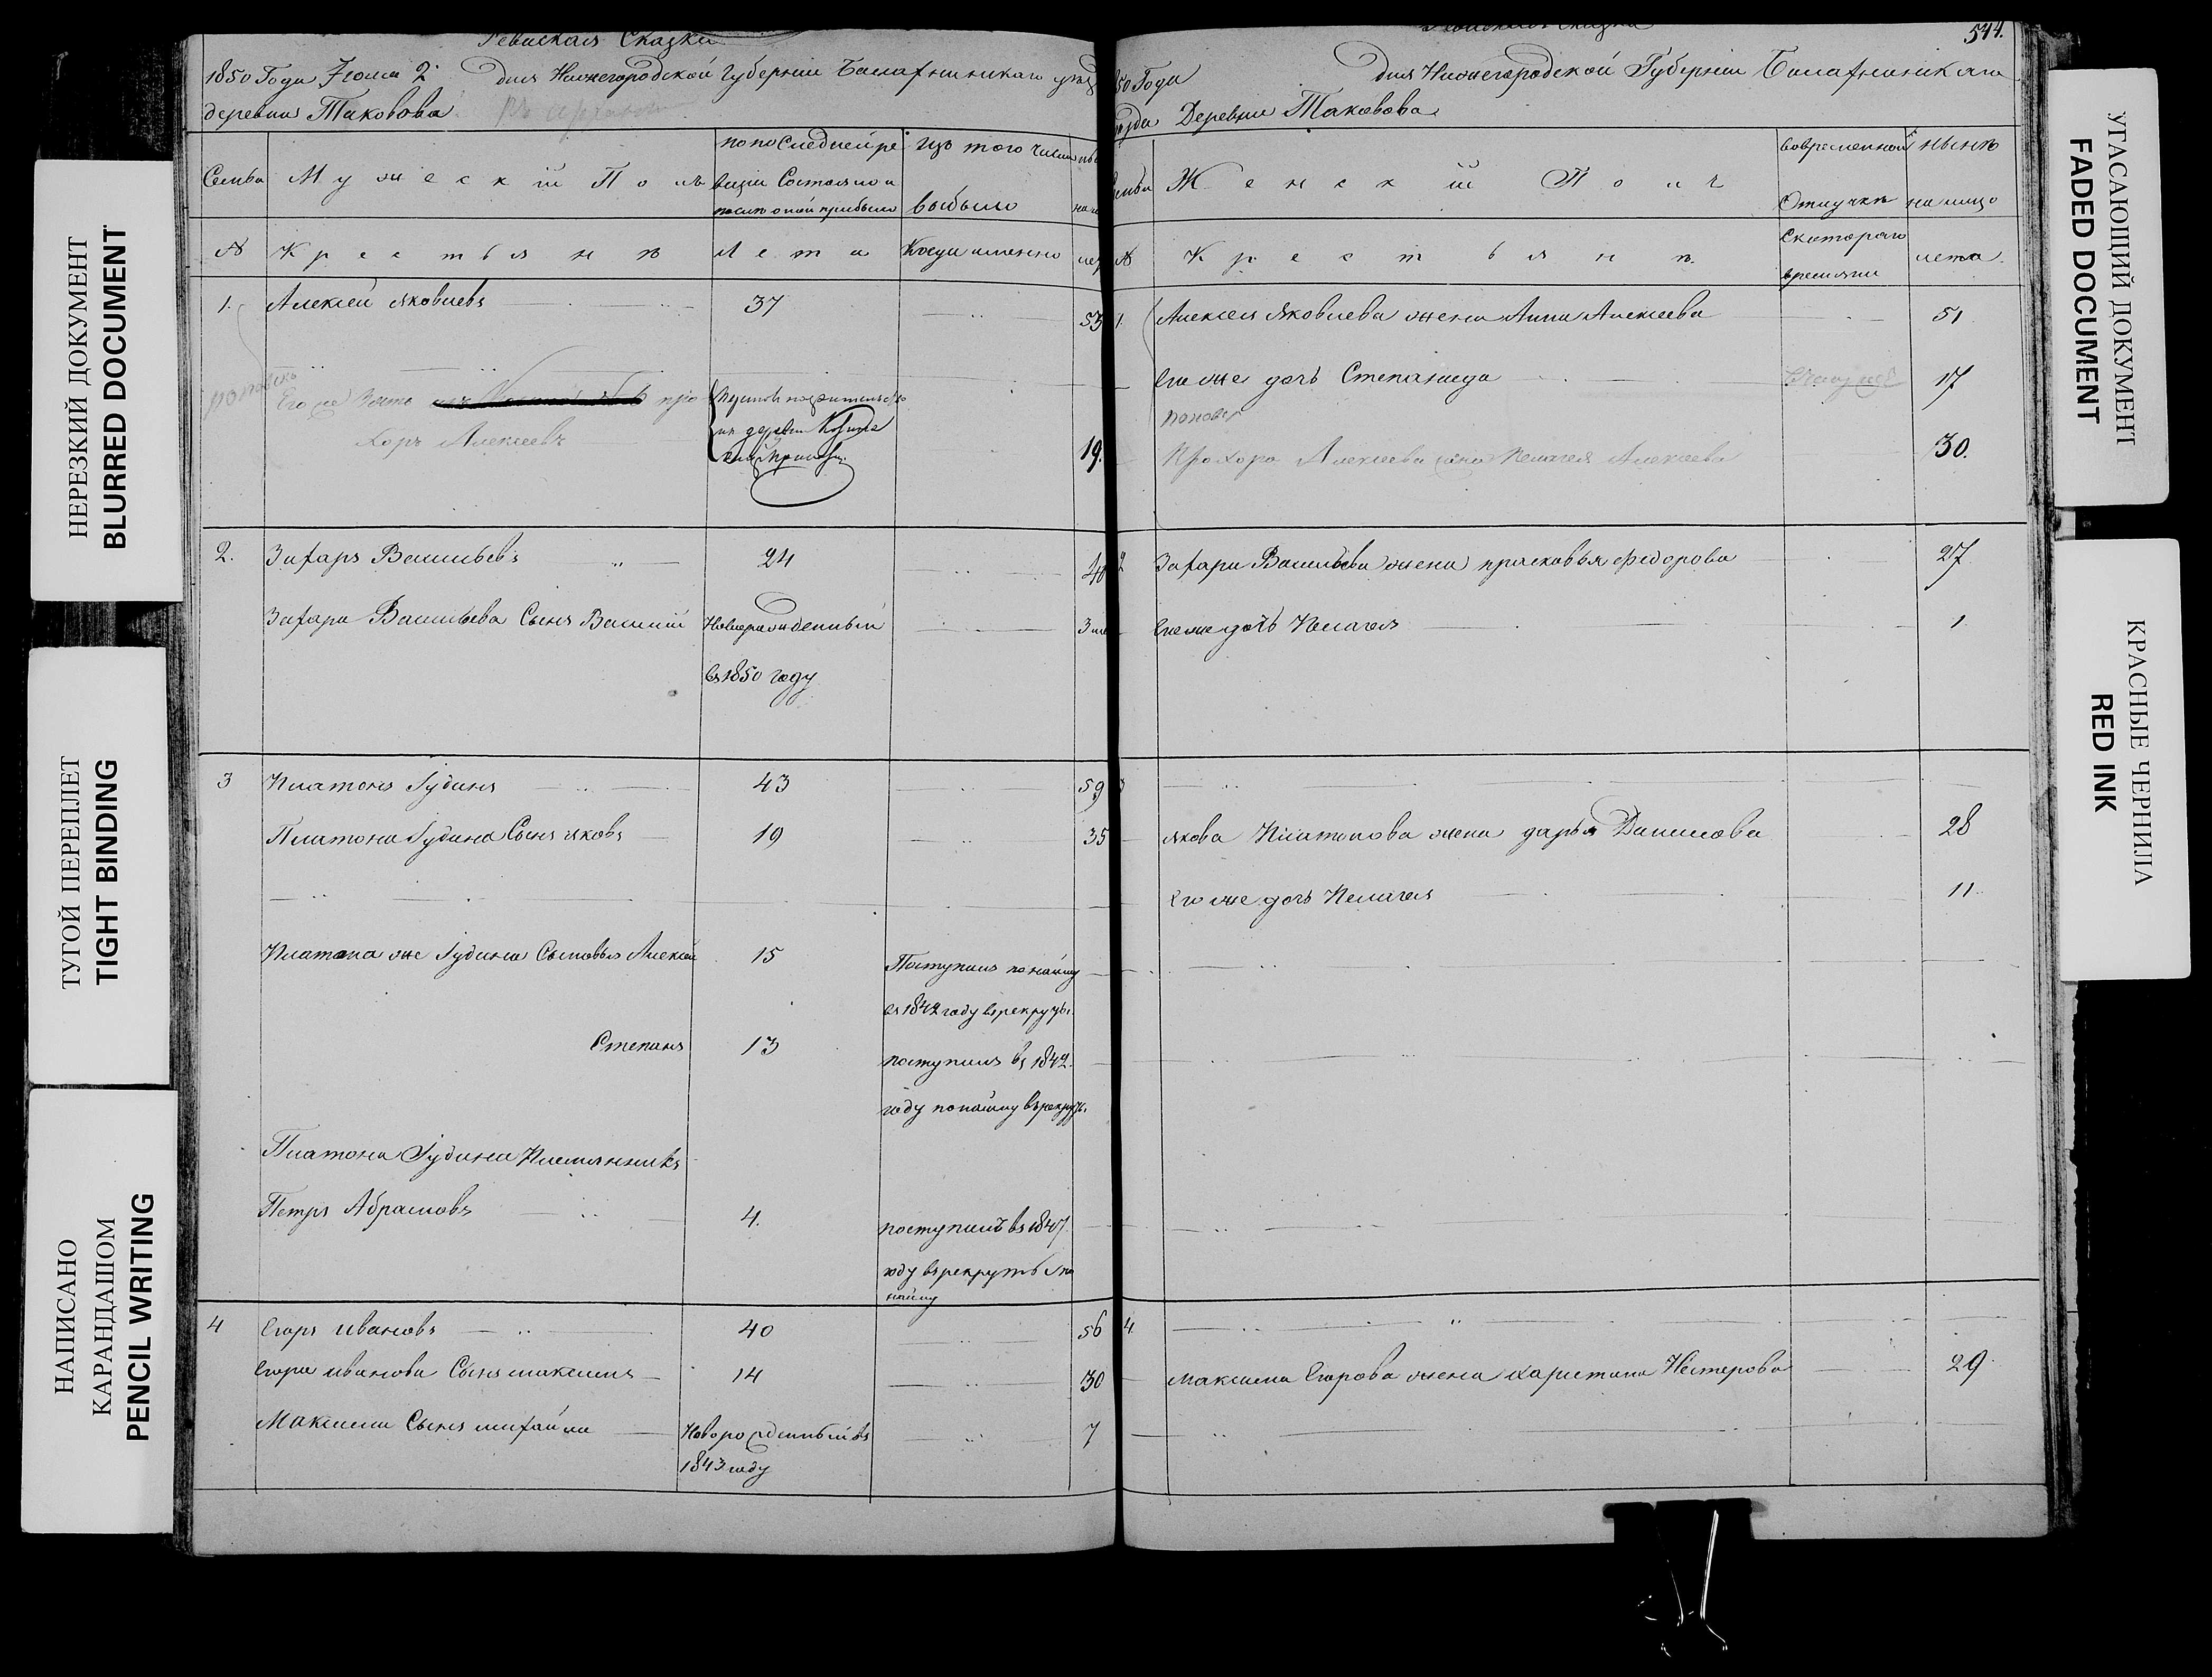 НЕРЕЗКИЙ ДОКУМЕНТ
BLURRED DOCUMENT
ТУГОЙ ПЕРЕПЛЕТ
TIGHT BINDING
НАПИСАНО
КАРАНДАШОМ
PENCIL WRITING
Ревиская Сказка
1850 Года Июля 2 дня Нижегородской Губерніи
деревни
Семьи
Мужескій Полъ
по последней ре
визіи Состояло и
после оной прибыло
Изъ того числа
выбыло
№
Крестьянѣ
Лета
Когда именно
1. Алексѣй Яковлевъ 37 53
Его же Зять про
хоръ Алексеевъ
19.
2. Захаръ Васильевъ 24 40
Захара Васильева Сынъ Василий Новорожденный
въ 1850 году
3 Платонъ Іудинъ 43 59
Платона Іудина Сынъ яковъ 19 35
Платона же Іудина Сыновья Алексей 15 Поступилъ по найму
въ 1842 году в рекруты
Степанъ 13 поступилъ въ 1842
году по найму в рекруты
Платона Іудина Племянникъ
Петръ Абрамовъ 4. поступилъ въ 1847
году в рекруты по
найму
4 Егоръ Ивановъ 40 56
Егора Иванова Сынъ максимъ 14 30
Максима Сынъ михайла Новорожденный въ 7
1843 году
544.
50 Года дня Нижегородской Губерніи
Деревни
Женскій Полъ
Во временной
Отлучке
ныне
на лицо
№
Крестьянѣ
Скотораго
времяни
лета.
1. Алексея Яковлева жена Анна Алексеева 51
Его же дочь Степанида 17
Прохора Алексеева жена Пелагея Алексеева 30.
2 Захара Васильева жена прасковья Федорова 27
Его же дочь Пелагея 1
3
якова Платонова жена дарья Данилова 28
Его же дочь Пелагея 11
4
Максима Егорова жена харитина Нестерова 29
УГАСАЮЩИЙ ДОКУМЕНТ
FADED DOCUMENT
КРАСНЫЕ ЧЕРНИЛА
RED INK